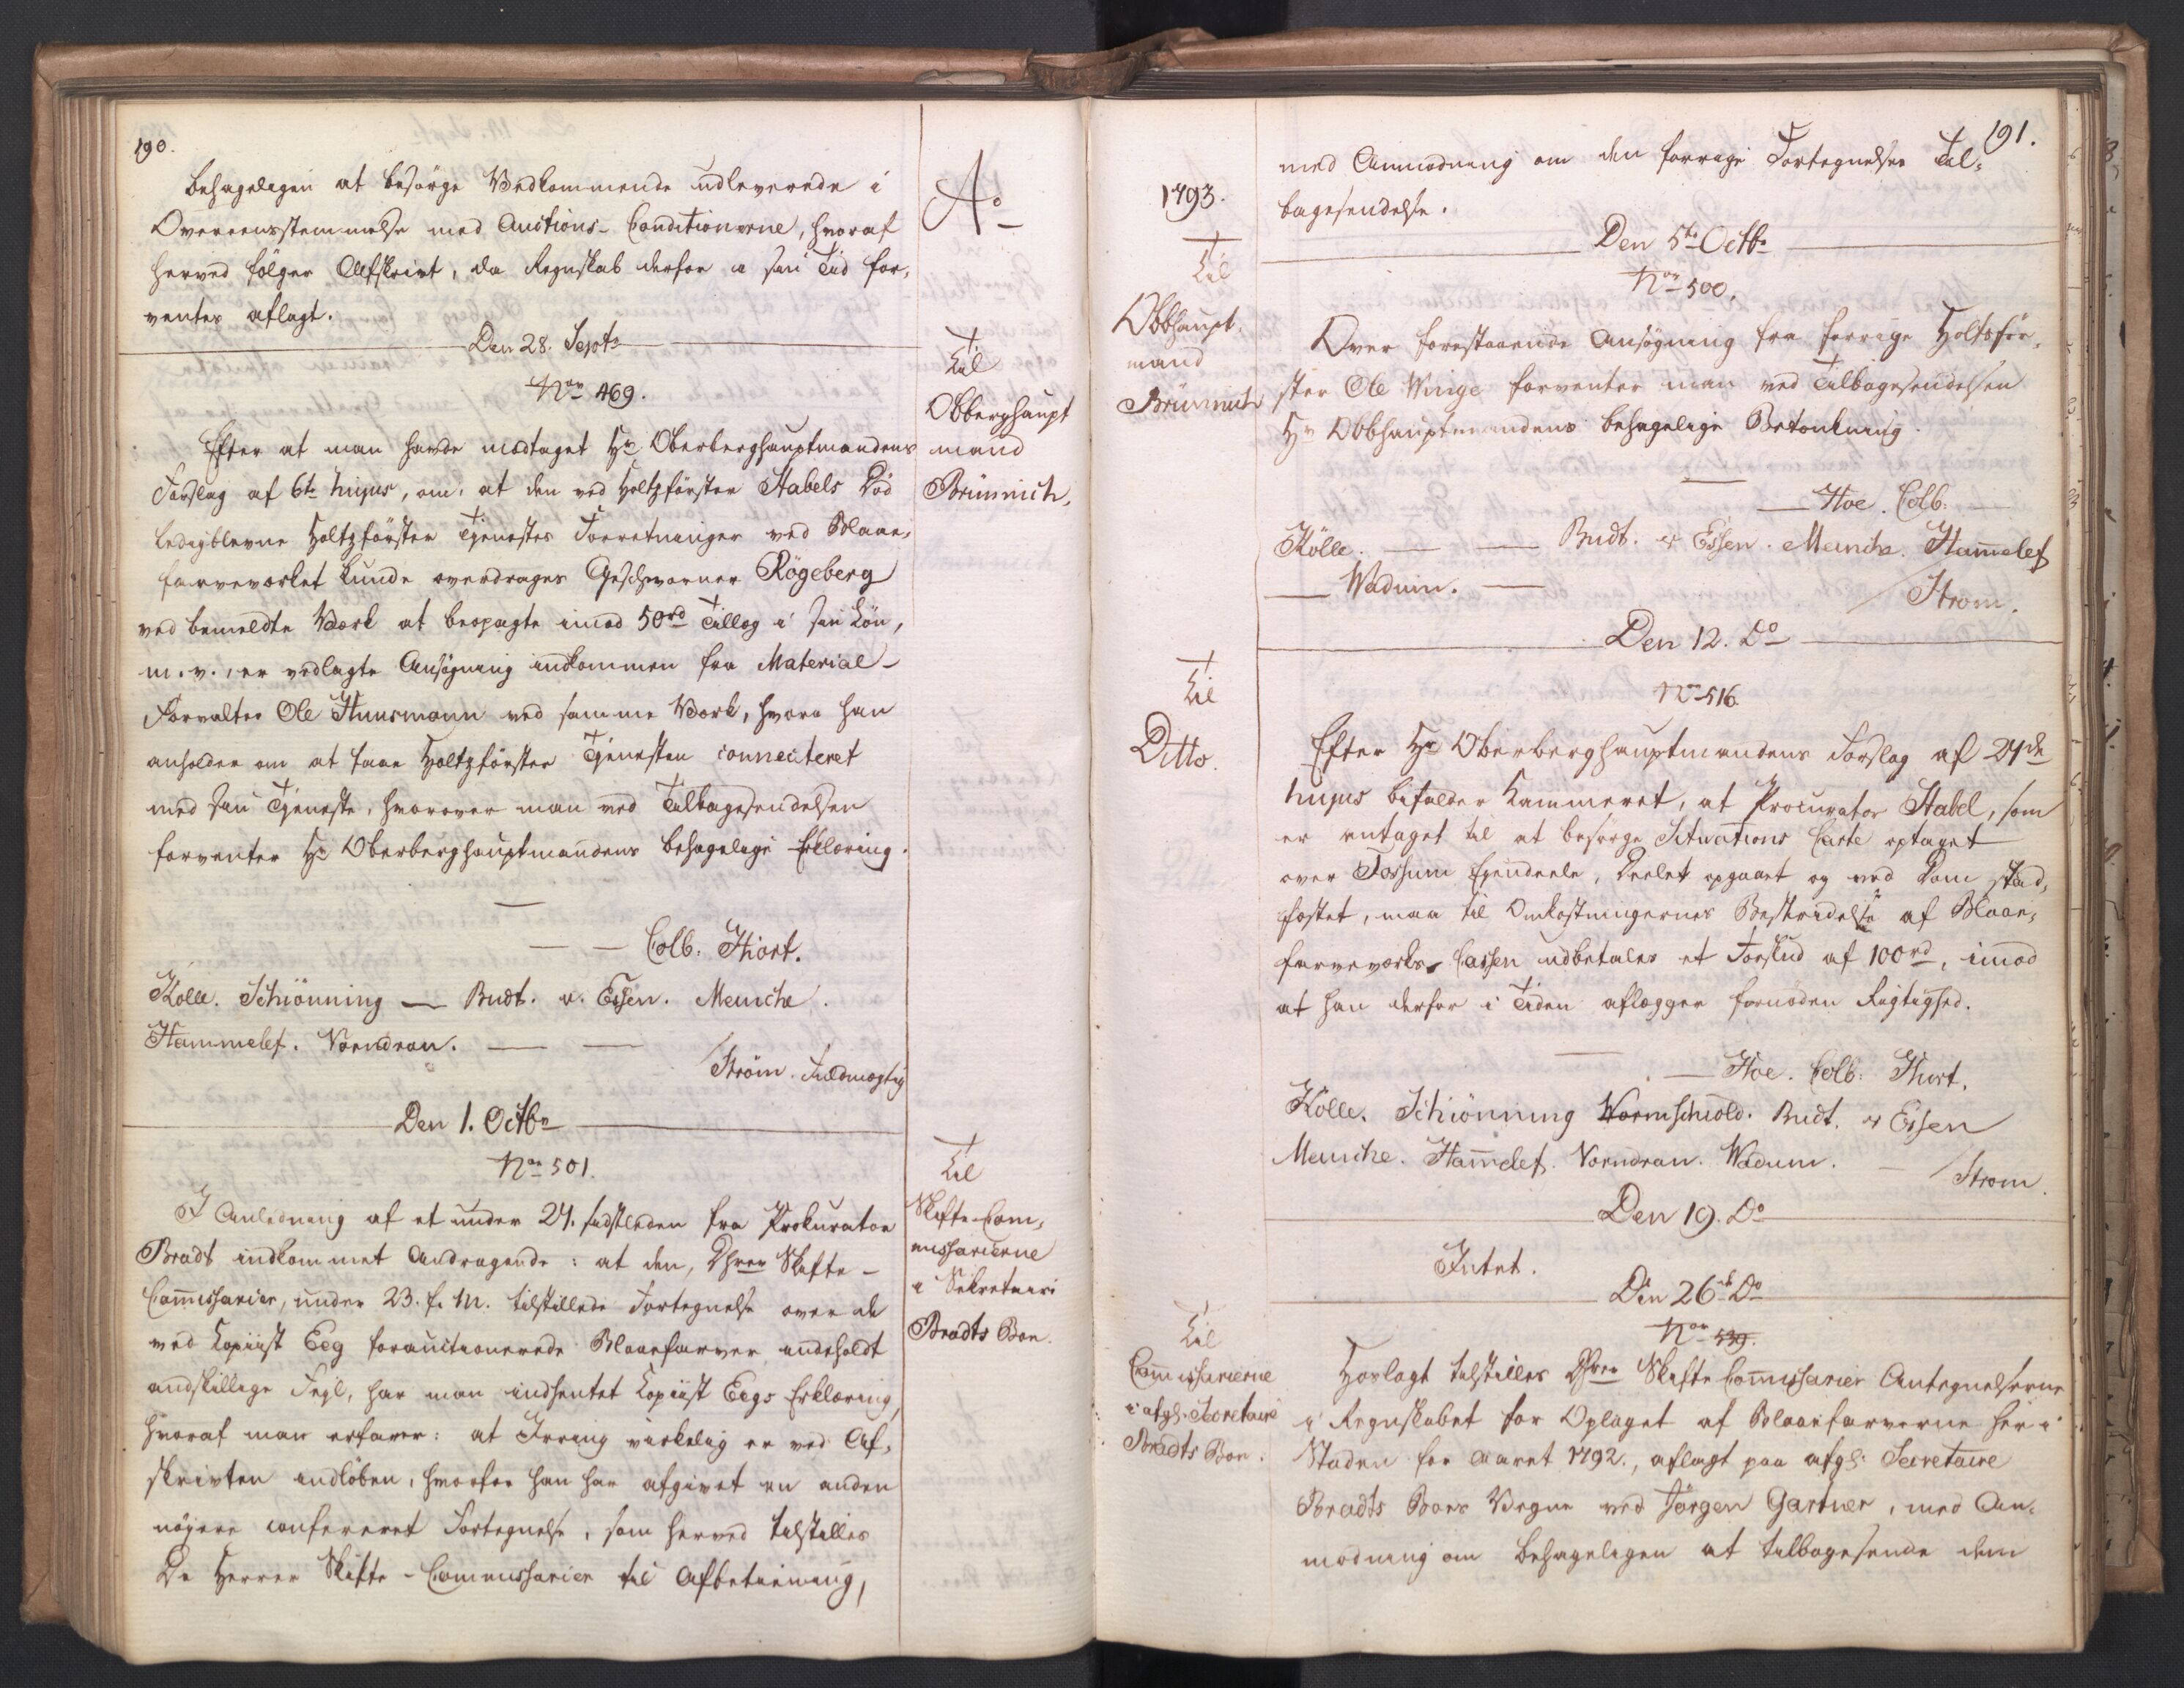 190.
behageligen at besørge Vedkommende udleverede i
Overeensstemmelse med Auctions-Conditionerne, hvoraf
herved følger Afskrivt, da Regnskab derfor i sin Tid for-
ventes aflagt.
Den 28. Septr
Nor 469.
Efter at man havde modtaget Hr Oberberghauptmandens
Forslag af 6te hujus, om, at den ved Holtzførster Stabels Død
ledigblevne Holtzførster Tjenestes Forretninger ved Blaae-
farveværket kunde overdrages Geschworner Rögeberg
ved bemeldte Værk at beopagte imod 50rd Tillæg i sin Løn,
m. v., er vedlagte Ansøgning indkommen fra Material-
Forvalter Ole Huusmann ved samme Værk, hvori han
anholder om at faae Holtzførster Tjenesten connecteret
med sin Tjeneste, hvorover man ved Tilbagesendelsen
forventer Hr Oberberghauptmandens behagelige Erklæring.
Colb: Hiort.
Kölle. Schiönning — Budt. v. Essen. Meinche.
Hammelef. Vorndran.
Ström. Fuldmægtig
Den 1. Octbr
Nor 501.
I Anledning af et under 24. sidstleden fra Prokurator
Bradt indkommet Andragende: at den, Dhrer Skifte-
Commissarier, under 23. f. M. tilstillede Fortegnelse over de
ved Kopiist Eeg forauctionerede Blaaefarver indeholdt
adskillige Fejl, har man indhentet Kopiist Eegs Erklæring,
hvoraf man erfarer: at Irring virkelig er ved Af-
skrivten indløben, hvorfor han har afgivet en anden
nøjere confereret Fortegnelse, som herved tilstilles
De Herrer Skifte-Commissarier til Afbetiening,
Ao
Til
Obberghaupt
mand
Brünnich.
Til
Skifte-Com-
missarierne
i Sekretairi
Bradts Boe.
191.
1793.
med Anmodning om den forrige Fortegnelses Til-
bagesendelse.
Den 5te Octbr
Nor 500.
Til
Obbhaupt-
mand
Brünnich
Over forestaaende Ansøgning fra forrige Holtsfør-
ster Ole Winge forventer man ved Tilbagesendelsen
Hr Obbhauptmandens behagelige Betænkning.
Hoe. Colb:
Kölle. — — Budt. v Essen. Meinche. Hammelef
— Wadum. —
Strøm.
Den 12. Do
Nor 516.
Til
Ditto.
Efter Hr Oberberghauptmandens Forslag af 24de
hujus bifalder Kammeret, at Procurator Stabel, som
er antaget til at besørge Situations Carte optaget
over Fossum Ejendeele, Deelet opgaaet og ved Dom stad-
fæstet, maa til Omkostningernes Bestridelse af Blaae-
farveværks Cassen udbetales et Forskud af 100rd, imod
at han derfor i Tiden aflægger fornøden Rigtighed.
Hoe. Colb: Hiort.
Kölle. Schiönning Wormschiold. Budt. v Essen
Meinche. Hammelef. Vorndran. Wadum.
Strøm.
Den 19. Do
Intet.
Den 26de Do
Nor 539.
Til
Commissarierne
i afg: Secretaire
Bradts Boe.
Hoslagt tilstilles Dhrer Skifte Commissarier Antegnelserne
i Regnskabet for Oplaget af Blaaefarverne her i
Staden for Aaret 1792., aflagt paa afg: Secretaire
Bradts Boes Vegne ved Jörgen Gartner, med An-
modning om behageligen at tilbagesende dem